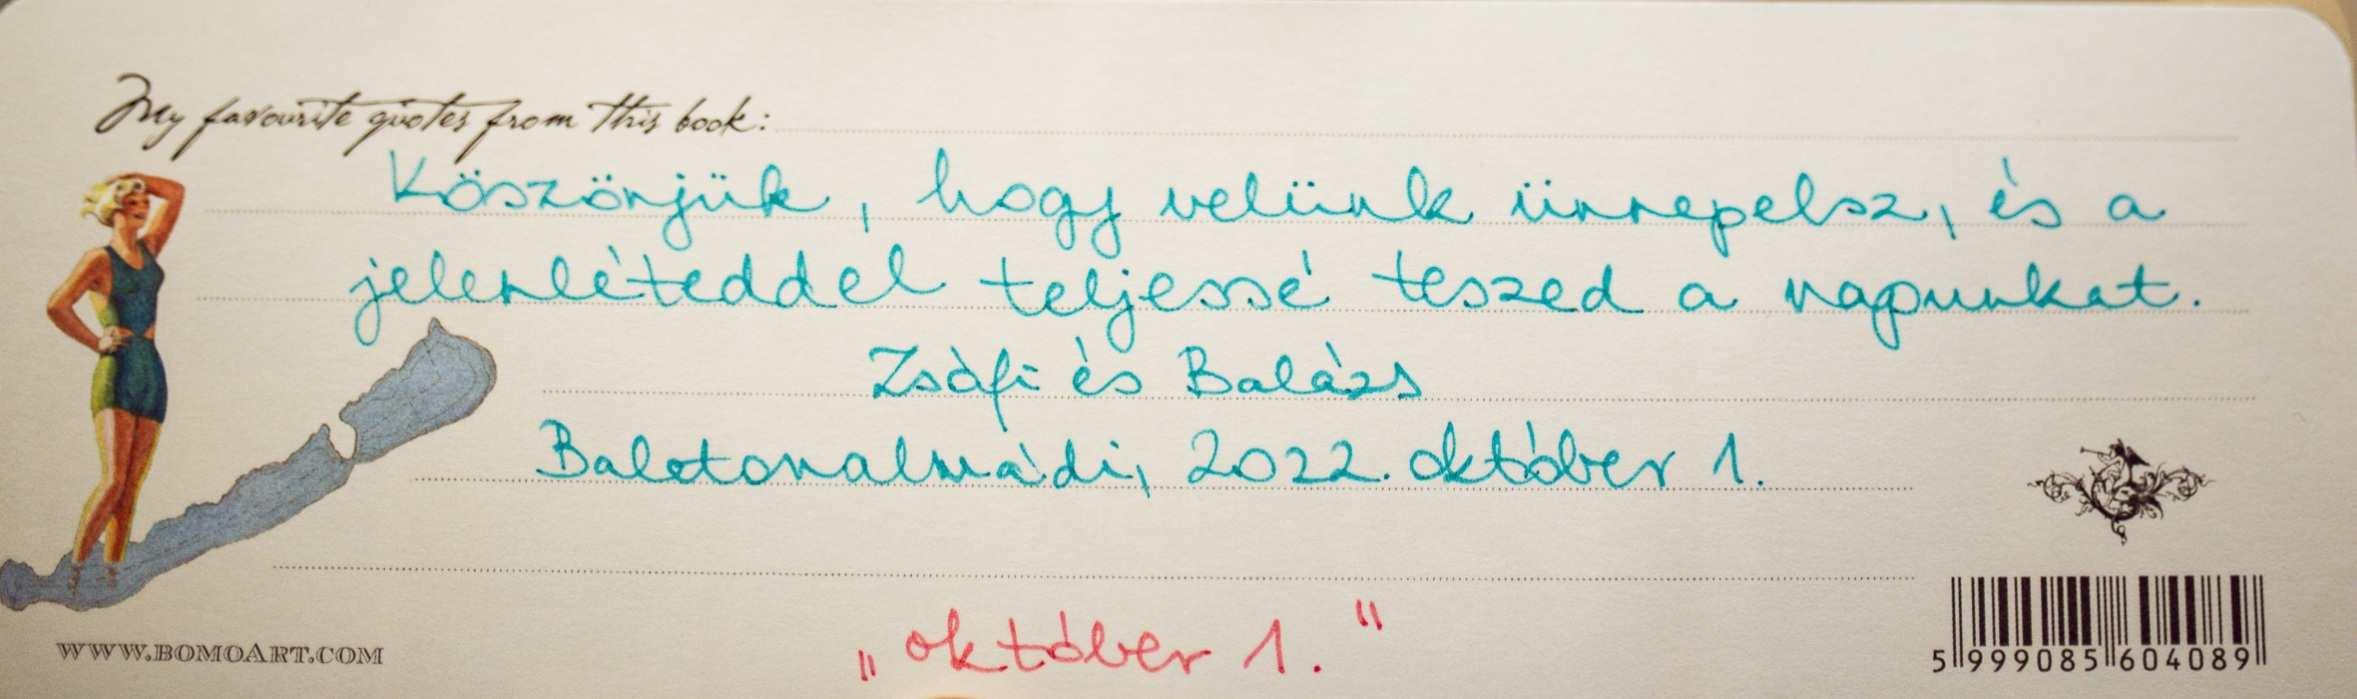 My favourite quotes from this book:
Köszönjük, hogy velünk ünnepelsz, és a
jelenléteddel teljessé teszed a napunkat.
Zsófi és Balázs
Balatonalmádi, 2022. október 1.
„október 1."
WWW.BOMOART.COM
5 999085 604089